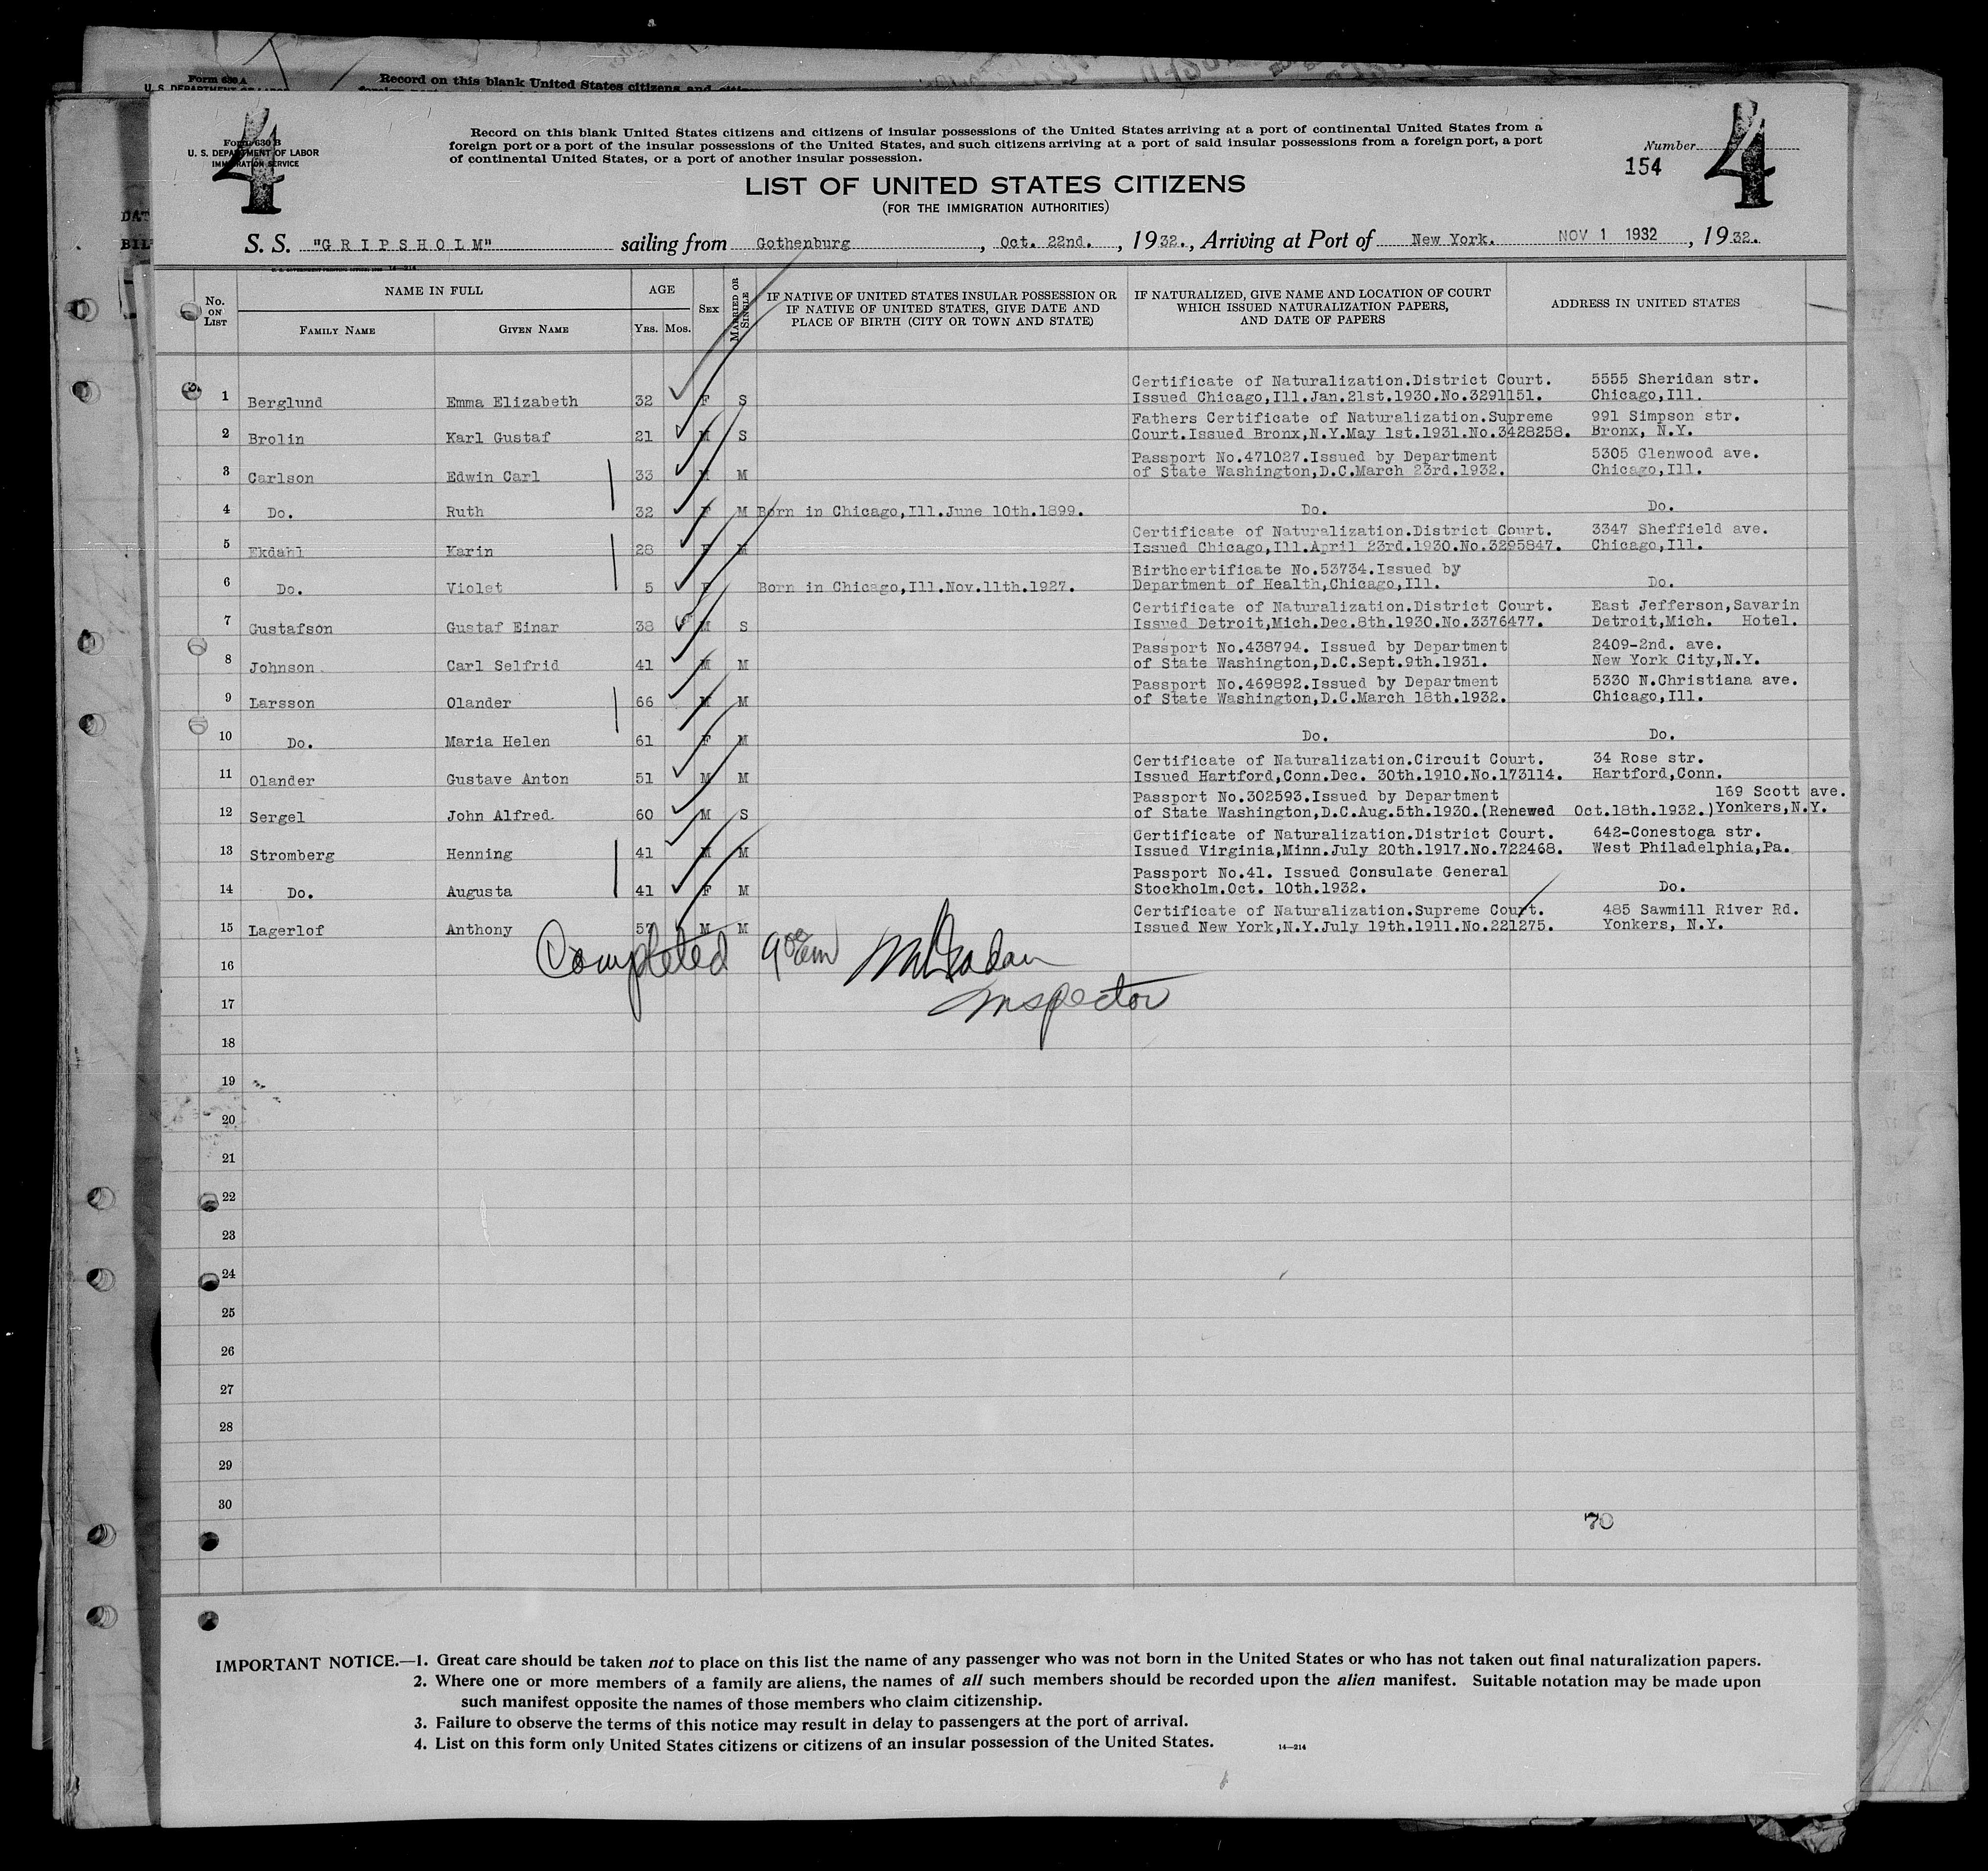 Form 630 A
U. S. DEPARTMENT OF LABOR
Record on this blank United States citizens and
4
Form 630 B
U. S. DEPARTMENT OF LABOR
IMMIGRATION SERVICE
Record on this blank United States citizens and citizens of insular possessions of the United States arriving at a port of continental United States from a
foreign port or a port of the insular possessions of the United States, and such citizens arriving at a port of said insular possessions from a foreign port, a port
of continental United States, or a port of another insular possession.
Number
154
4
LIST OF UNITED STATES CITIZENS
(FOR THE IMMIGRATION AUTHORITIES)
S. S. "GRIPSHOLM" sailing from Gothenburg, Oct. 22nd., 1932., Arriving at Port of New York. NOV 1 1932, 1932.
No. ON LIST
NAME IN FULL
FAMILY NAME GIVEN NAME
AGE
YRS. MOS.
SEX
MARRIED OR SINGLE
IF NATIVE OF UNITED STATES INSULAR POSSESSION OR
IF NATIVE OF UNITED STATES, GIVE DATE AND
PLACE OF BIRTH (CITY OR TOWN AND STATE)
IF NATURALIZED, GIVE NAME AND LOCATION OF COURT
WHICH ISSUED NATURALIZATION PAPERS,
AND DATE OF PAPERS
ADDRESS IN UNITED STATES
Certificate of Naturalization.District Court. 5555 Sheridan str.
1 Berglund Emma Elizabeth 32 F S Issued Chicago,Ill.Jan.21st.1930.No.3291151. Chicago,Ill.
Fathers Certificate of Naturalization.Supreme 991 Simpson str.
2 Brolin Karl Gustaf 21 M S Court.Issued Bronx,N.Y.May 1st.1931.No.3428258. Bronx, N.Y.
Passport No.471027.Issued by Department 5305 Glenwood ave.
3 Carlson Edwin Carl 33 M M of State Washington,D.C.March 23rd.1932. Chicago,Ill.
4 Do. Ruth 32 F M Born in Chicago,Ill.June 10th.1899. Do. Do.
Certificate of Naturalization.District Court. 3347 Sheffield ave.
5 Ekdahl Karin 28 F M Issued Chicago,Ill.April 23rd.1930.No.3295847. Chicago,Ill.
Birthcertificate No.53734.Issued by
6 Do. Violet 5 F Born in Chicago,Ill.Nov.11th.1927. Department of Health,Chicago,Ill. Do.
Certificate of Naturalization.District Court. East Jefferson,Savarin
7 Gustafson Gustaf Einar 38 M S Issued Detroit,Mich.Dec.8th.1930.No.3376477. Detroit,Mich. Hotel.
Passport No.438794. Issued by Department 2409-2nd. ave.
8 Johnson Carl Selfrid 41 M M of State Washington,D.C.Sept.9th.1931. New York City,N.Y.
Passport No.469892.Issued by Department 5330 N.Christiana ave.
9 Larsson Olander 66 M M of State Washington,D.C.March 18th.1932. Chicago,Ill.
10 Do. Maria Helen 61 F M Do. Do.
Certificate of Naturalization.Circuit Court. 34 Rose str.
11 Olander Gustave Anton 51 M M Issued Hartford,Conn.Dec. 30th.1910.No.173114. Hartford,Conn.
Passport No.302593.Issued by Department 169 Scott ave.
12 Sergel John Alfred 60 M S of State Washington,D.C.Aug.5th.1930.(Renewed Oct.18th.1932.) Yonkers,N.Y.
Certificate of Naturalization.District Court. 642-Conestoga str.
13 Stromberg Henning 41 M M Issued Virginia,Minn.July 20th.1917.No.722468. West Philadelphia,Pa.
Passport No.41. Issued Consulate General
14 Do. Augusta 41 F M Stockholm.Oct. 10th.1932. Do.
Certificate of Naturalization.Supreme Court. 485 Sawmill River Rd.
15 Lagerlof Anthony 57 M M Issued New York,N.Y.July 19th.1911.No.221275. Yonkers, N.Y.
Completed
16
Inspector
17
18
19
20
21
22
23
24
25
26
27
28
29
30
70
IMPORTANT NOTICE.—1. Great care should be taken not to place on this list the name of any passenger who was not born in the United States or who has not taken out final naturalization papers.
2. Where one or more members of a family are aliens, the names of all such members should be recorded upon the alien manifest. Suitable notation may be made upon
such manifest opposite the names of those members who claim citizenship.
3. Failure to observe the terms of this notice may result in delay to passengers at the port of arrival.
4. List on this form only United States citizens or citizens of an insular possession of the United States.
14—214